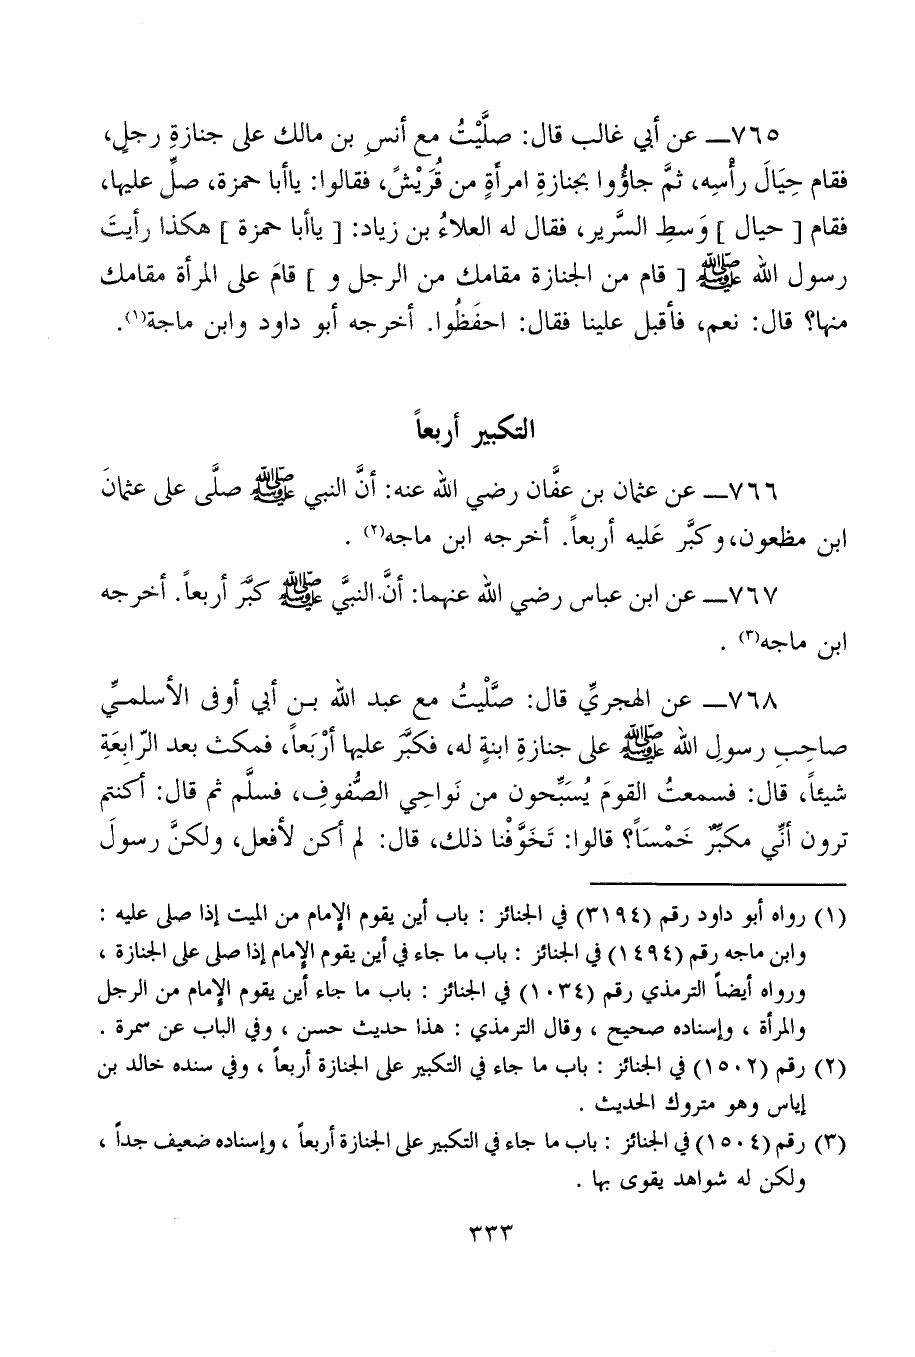 ٧٦٥ــ عن أبي غالب قال: صلَّيْتُ مع أنسِ بن مالك على جنازةِ رجلٍ،
فقام حِيَالَ رأْسِه، ثمَّ جاؤُوا بجنازةِ امرأَةٍ من قُرَيْشٍ، فقالوا: ياأبا حمزة، صلِّ عليها،
فقام [ حيال ] وَسطِ السَّرير، فقال له العلاءُ بن زياد: [ ياأبا حمزة ] هكذا رأيتَ
رسول الله ﷺ [ قام من الجنازة مقامك من الرجل و ] قامَ على المرأة مقامك
منها؟ قال: نعم، فأقبل علينا فقال: احفَظُوا. أخرجه أبو داود وابن ماجة(١).
التكبير أربعاً
٧٦٦ــ عن عثمان بن عفَّان رضي الله عنه: أنَّ النبي ﷺ صلَّى على عثمانَ
ابن مظعون، وكبَّر عَليه أربعاً. أخرجه ابن ماجه(٢) .
٧٦٧ــ عن ابن عباس رضي الله عنهما: أنَّ النبيَّ ﷺ كبَّرَ أربعاً. أخرجه
ابن ماجه(٣) .
٧٦٨ــ عن الهجريِّ قال: صَّلْيتُ مع عبد الله بـن أبي أوفى الأسلمـيِّ
صاحِبِ رسولِ الله ﷺ على جنازةِ ابنةٍ له، فكبَّرَ عليها أرْبَعاً، فمكث بعد الرّابِعَةِ
شيئاً، قال: فسمعتُ القومَ يُسَبِّحون من نَواحِي الصُّفوفِ، فسلَّم ثم قال: أكنتم
ترون أنِّي مكبِّرٌ خَمْسَاً؟ قالوا: تَخَوَّفْنا ذلك، قال: لم أكن لأفعل، ولكنَّ رسولَ
(١) رواه أبو داود رقم (٣١٩٤) في الجنائز : باب أين يقوم الإمام من الميت إذا صلى عليه :
وابن ماجه رقم (١٤٩٤) في الجنائز : باب ما جاء في أين يقوم الإمام إذا صلى على الجنازة ،
ورواه أيضاً الترمذي رقم (١٠٣٤) في الجنائز : باب ما جاء أين يقوم الإمام من الرجل
والمرأة ، وإسناده صحيح ، وقال الترمذي : هذا حديث حسن ، وفي الباب عن سمرة .
(٢) رقم (١٥٠٢) في الجنائز : باب ما جاء في التكبير على الجنازة أربعاً ، وفي سنده خالد بن
إياس وهو متروك الحديث .
(٣) رقم (١٥٠٤) في الجنائز : باب ما جاء في التكبير على الجنازة أربعاً ، وإسناده ضعيف جداً ،
ولكن له شواهد يقوى بها .
٣٣٣